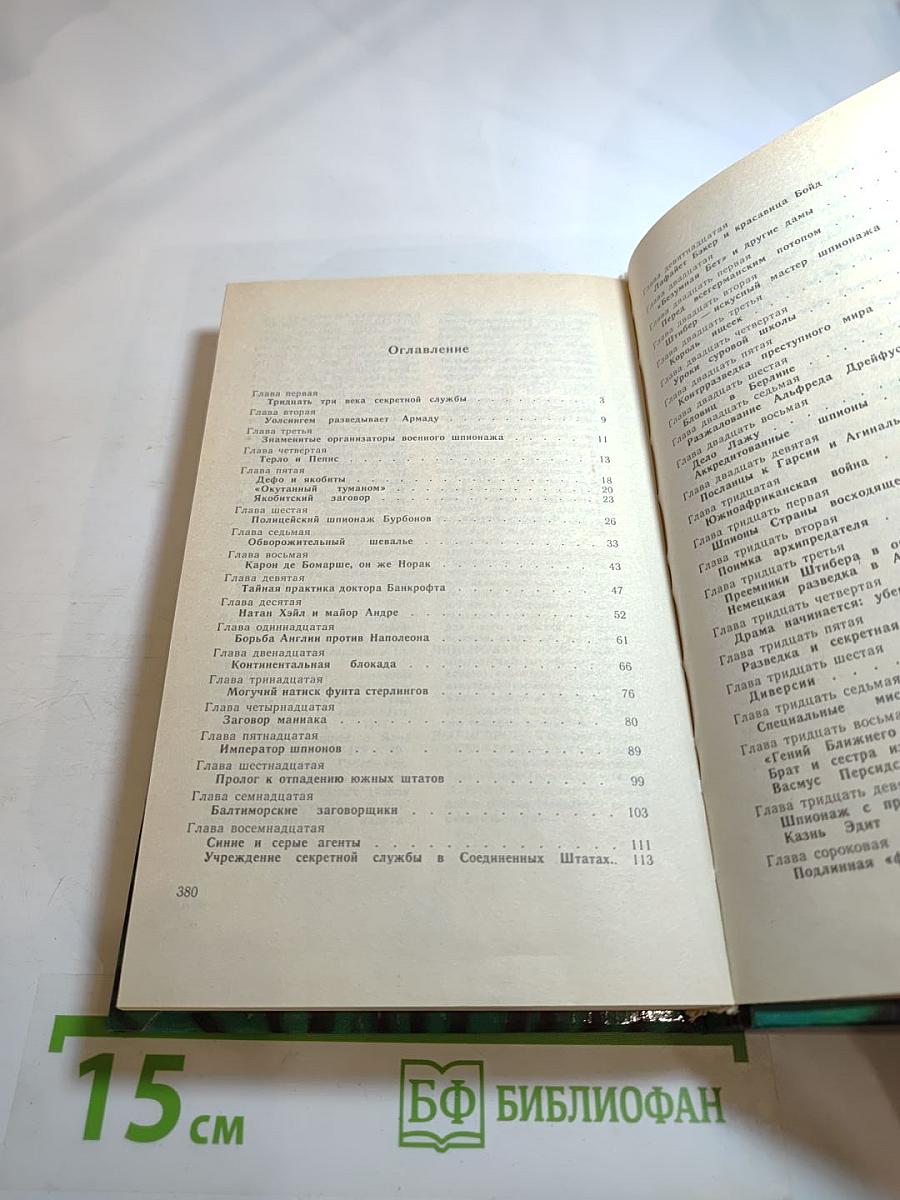 Оглавление
Глава первая
Тридцать три века секретной службы . . . . . . . . . . 3
Глава вторая
Уолсингем разведывает Армаду . . . . . . . . . . 9
Глава третья
Знаменитые организаторы военного шпионажа . . . . . . . 11
Глава четвертая
Терло и Пепис . . . . . . . . . . 13
Глава пятая
Дефо и якобиты . . . . . . . . . . 18
«Окутанный туманом» . . . . . . . . . . 20
Якобитский заговор . . . . . . . . . . 23
Глава шестая
Полицейский шпионаж Бурбонов . . . . . . . . . . 26
Глава седьмая
Обворожительный шевалье . . . . . . . . . . 33
Глава восьмая
Карон де Бомарше, он же Норак . . . . . . . . . . 43
Глава девятая
Тайная практика доктора Банкрофта . . . . . . . . . . 47
Глава десятая
Натан Хэйл и майор Андре . . . . . . . . . . 52
Глава одиннадцатая
Борьба Англии против Наполеона . . . . . . . . . . 61
Глава двенадцатая
Континентальная блокада . . . . . . . . . . 66
Глава тринадцатая
Могучий натиск фунта стерлингов . . . . . . . . . . 76
Глава четырнадцатая
Заговор маниака . . . . . . . . . . 80
Глава пятнадцатая
Император шпионов . . . . . . . . . . 89
Глава шестнадцатая
Пролог к отпадению южных штатов . . . . . . . . . . 99
Глава семнадцатая
Балтиморские заговорщики . . . . . . . . . . 103
Глава восемнадцатая
Синие и серые агенты . . . . . . . . . . 111
Учреждение секретной службы в Соединенных Штатах.. 113
380
Глава девятнадцатая
Лафайет Бэкер и красавица Бойд
Глава двадцатая
«Безумная Бет» и другие дамы
Глава двадцать первая
Перед всегерманским потопом
Глава двадцать вторая
Штибер — искусный мастер шпионажа
Глава двадцать третья
Король ищеек
Глава двадцать четвертая
Уроки суровой школы
Глава двадцать пятая
Контрразведка преступного мира
Глава двадцать шестая
Бловиц в Берлине
Глава двадцать седьмая
Разжалование Альфреда Дрейфус
Глава двадцать восьмая
Дело Лажу
Аккредитованные шпионы
Глава двадцать девятая
Посланцы к Гарсии и Агиналь
Глава тридцатая
Южноафриканская война
Глава тридцать первая
Шпионы Страны восходяще
Глава тридцать вторая
Поимка архипредателя
Глава тридцать третья
Преемники Штибера в о
Немецкая разведка в А
Глава тридцать четвертая
Драма начинается: убе
Глава тридцать пятая
Разведка и секретная
Глава тридцать шестая
Диверсии
Глава тридцать седьмая
Специальные мис
Глава тридцать восьма
«Гений Ближнего
Брат и сестра из
Васмус Персидс
Глава тридцать дев
Шпионаж с пр
Казнь Эдит
Глава сороковая
Подлинная «ф
15 см
БФ БИБЛИОФАН